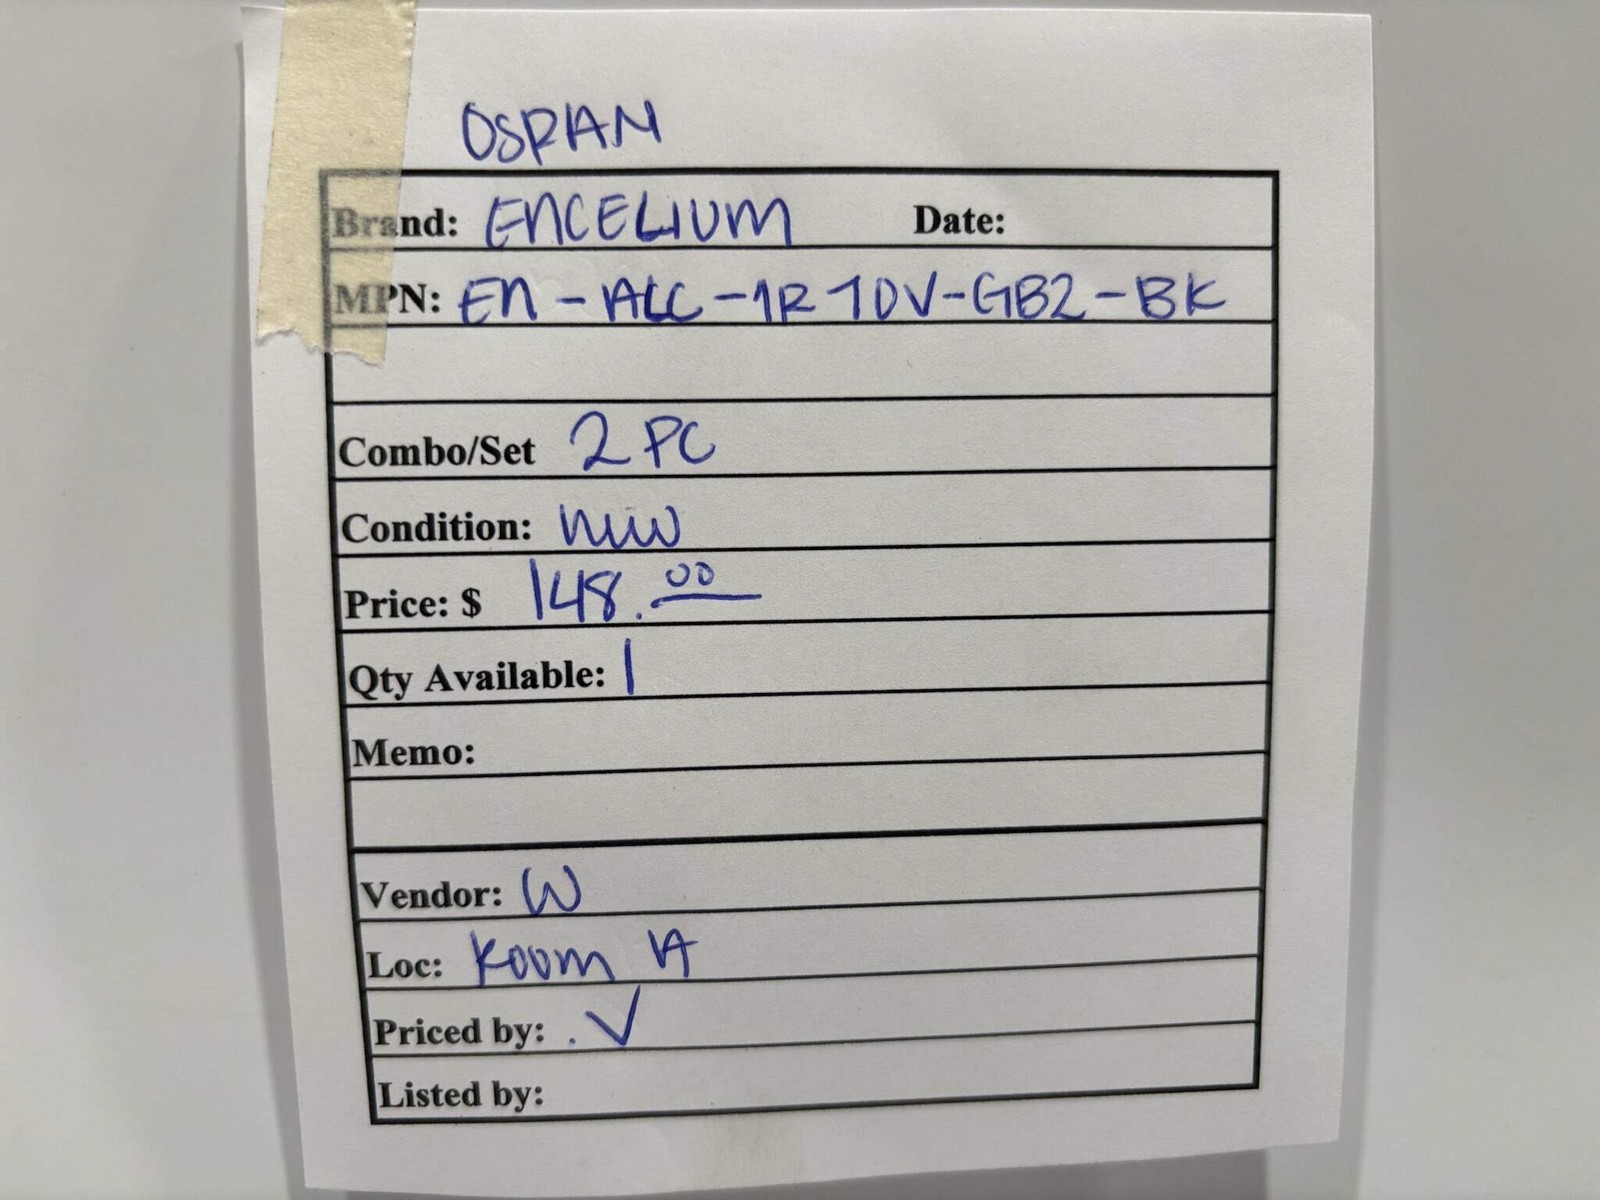 OSRAM
Brand: ENCELIUM Date:
MPN: EN-ALC-1R10V-GB2-BK
Combo/Set 2 PC
Condition: new
Price: $ 148.00
Qty Available: 1
Memo:
Vendor: W
Loc: Room A
Priced by: . ✓
Listed by: